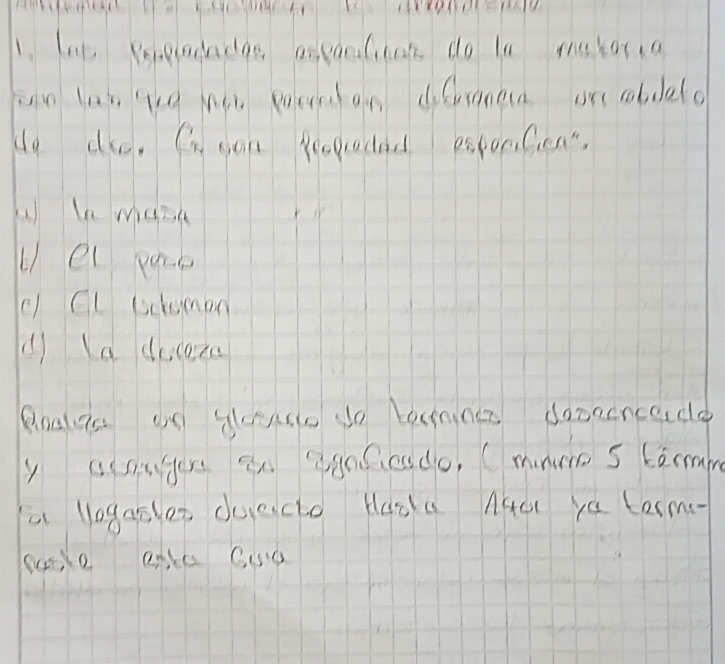 1. las propiedades especificas de la materia
son las que nos permiten diferencia un objeto
de otro. Es una propiedad especifica".
a) la masa
b) El peso
c) El volumen
d) la dureza
Realiza un glosario de terminos desconocido
y averigua su significado. (minimo 5 termino
si llegastes Hasta Aqui ya termi-
naste esta Guia